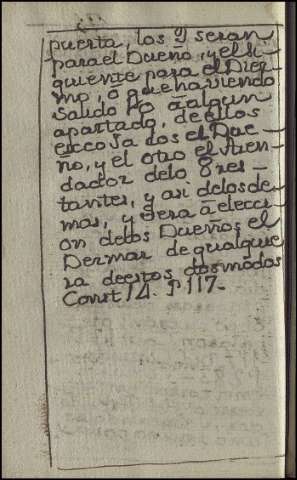 puerta, los 9 seran
para el Dueño, y el si-
guiente para el Diez-
mo, ô que haviendo
Salido 10 â algun
apartado, de ellos
escoja dos el Due-
ño, y el otro el Aren-
dador delo 8 res-
tantes, y asi delos de-
mas, y sera â elecci-
on delos Dueños el
Dezmar de qualquie-
ra de estos dos modos
Const 14. P 117-